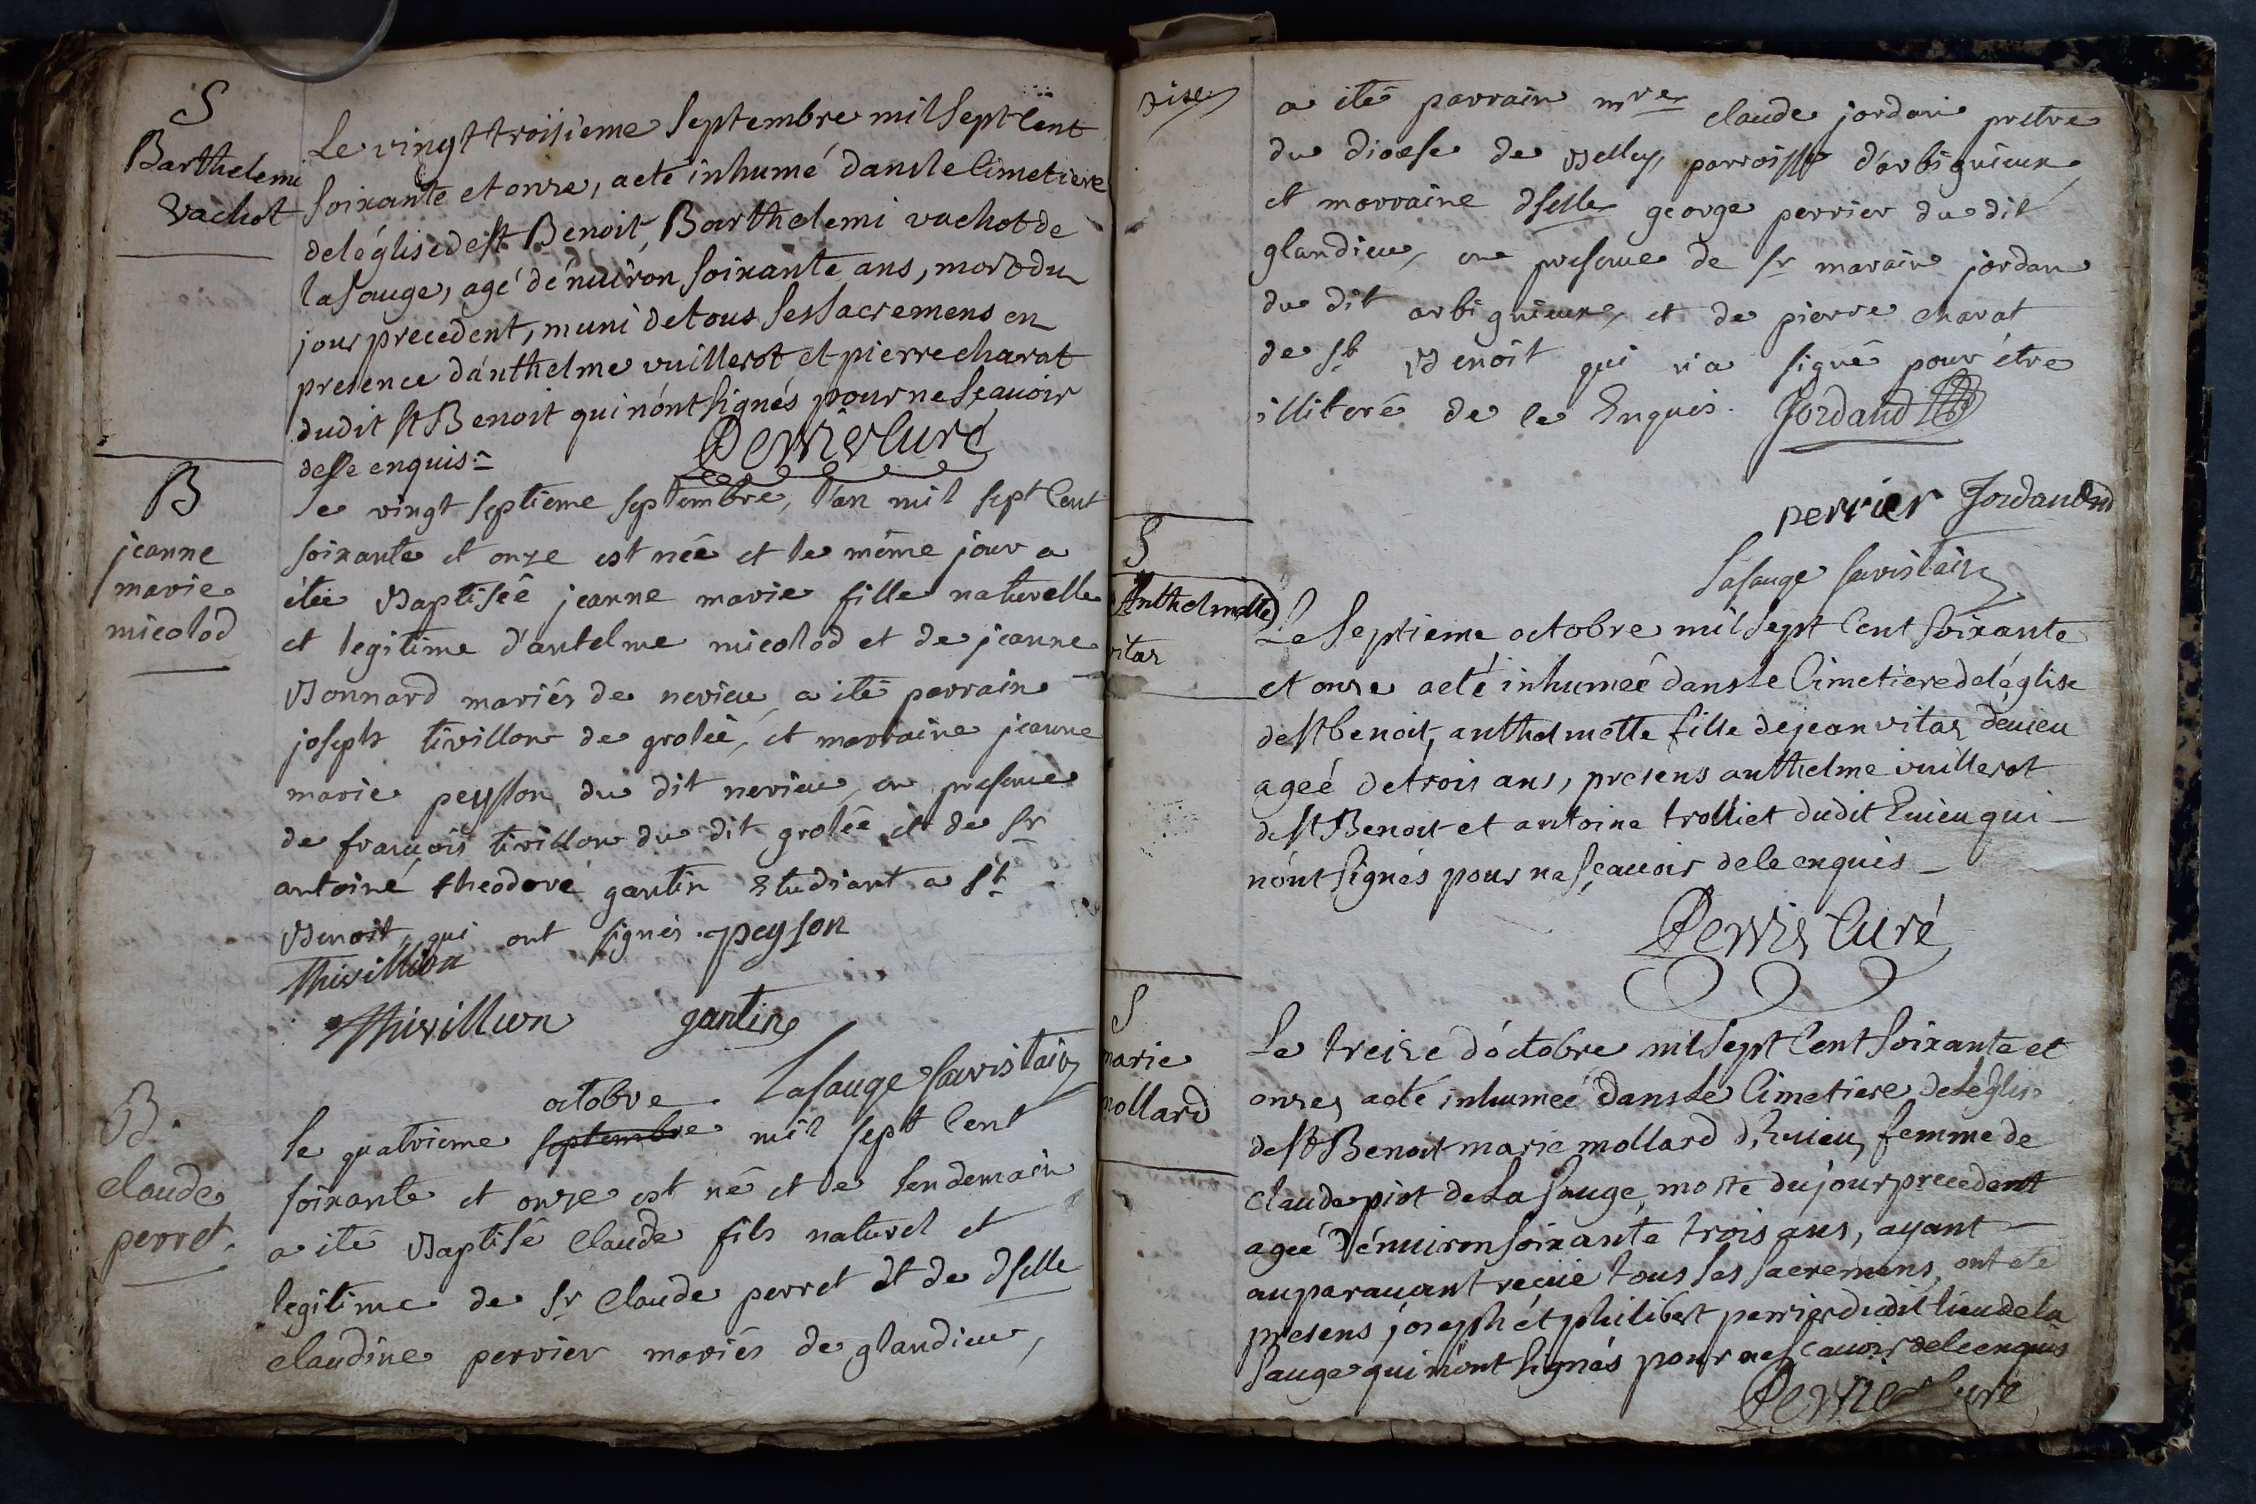 S
Barthelemi
vachot
Le vingt troisieme Septembre mil Sept Cent
Soixante et onze, a eté inhumé dans le Cimetiere
de l'église de St Benoit, Barthelemi vachot de
la Sauge, agé d'énuiron Soixante ans, mort du
jour precedent, muni de tous Ses Sacremens en
presence d'anthelme vuillerot et pierre charat
dudit St Benoit qui n'ont Signés pour ne Sçauoir
de le enquis
Perrier Curé
B
jeanne
marie
micolod
le vingt septieme septembre, l'an mil sept Cent
soixante et onze est née et le même jour a
étée Baptisée jeanne marie fille naturelle
et legitime d'antelme micolod et de jeanne
Bonnard mariés de nevieu, a ité parrain
joseph tivillon de grolée, et marraine jeanne
marie peysson du dit nevieu, en presence
de françois tivillon du dit grolée et de Sr
antoine theodore gantin Etudiant a St
Benoit, qui ont signés. peyson
Thivillion
Thivillion gantin
Lasauge Sacristain
B.
claude
perret.
octobre
le quatrieme septembre mil sept Cent
soixante et onze est né et le lendemain
a ité Baptisé Claude fils naturel et
legitime de Sr Claude perret et de dselle
claudine perrier mariés de glandieu,
a ité parrain mre claude jordan pretre
du diocese de Belley, parroisse d'arbignieux
et marraine dselle george perrier du dit
glandieu, en presence de Sr marain jordan
du dit arbignieux, et de pierre charat
de St Benoit qui n'a signé pour être
illiteré de le Enquis. Jordand
perrier Jordand
Lasauge Sacristain
S
Anthelmette
vitas
Le Septieme octobre mil Sept Cent Soixante
et onze a eté inhumeé dans le Cimetiere de l'église
de St benoit, anthelmette fille de jean vitas d'euieu
ageé de trois ans, presens anthelme vuillerot
de St Benoit et antoine trolliet dudit Euieu qui
n'ont Signés pour ne Sçauoir de le enquis
Perrier Curé
S
marie
mollard
Le treize d'octobre mil Sept Cent Soixante et
onze, a eté inhumeé dans Le Cimetiere de L'église
de St Benoit marie mollard d'Euieu, femme de
Claude piot de La Sauge, morte du jour precedent
ageé d'énuiron Soixante trois ans, ayant
auparauant reçue tous Ses Sacremens, ont eté
presens joseph et philibert perrier dudit lieu de la
Sauge qui n'ont Signés pour ne Scauoir de le enquis
Perrier Curé